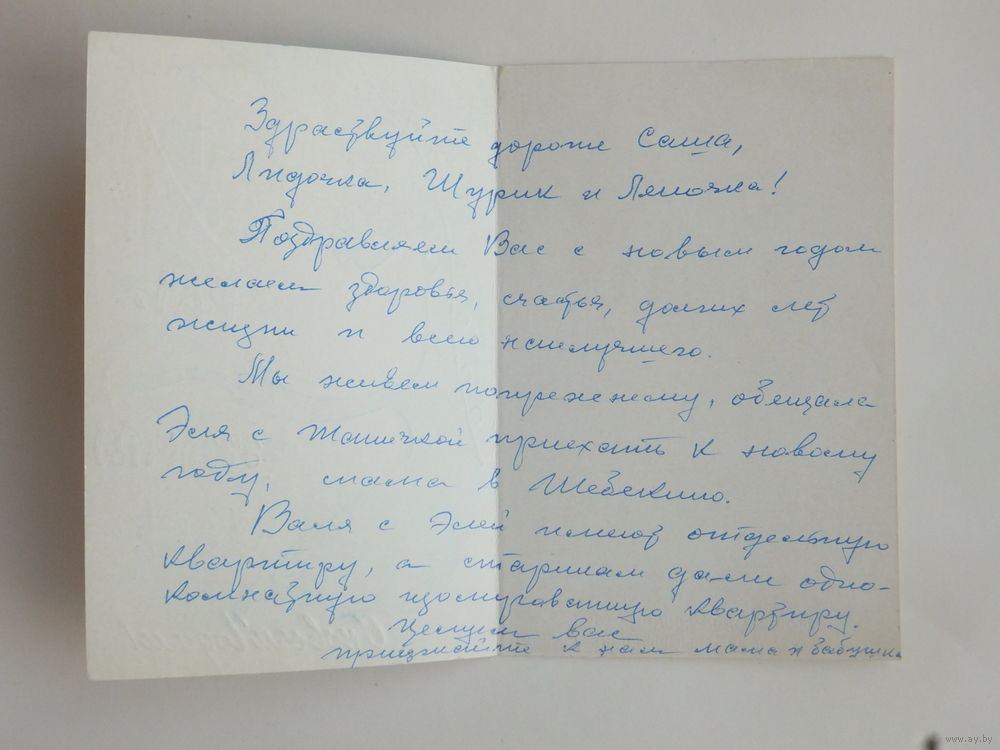 Здраствуйте дороже Саша,
Лидочка, Шурик и Ляночка!
Поздравляем Вас с новым годом
желаем здоровья, счастья, долгих лет
жизни и всего наилучшего.
Мы живем попрежнему, обещала
Эля с Таничкой приехать к новому
году, мама в Шебекино.
Валя с Элей имеют отдельную
квартиру, а старикам дали одно-
комнатную изолированную квартиру.
Целуем вас
приезжайте к нам мама и бабушка
www.ay.by